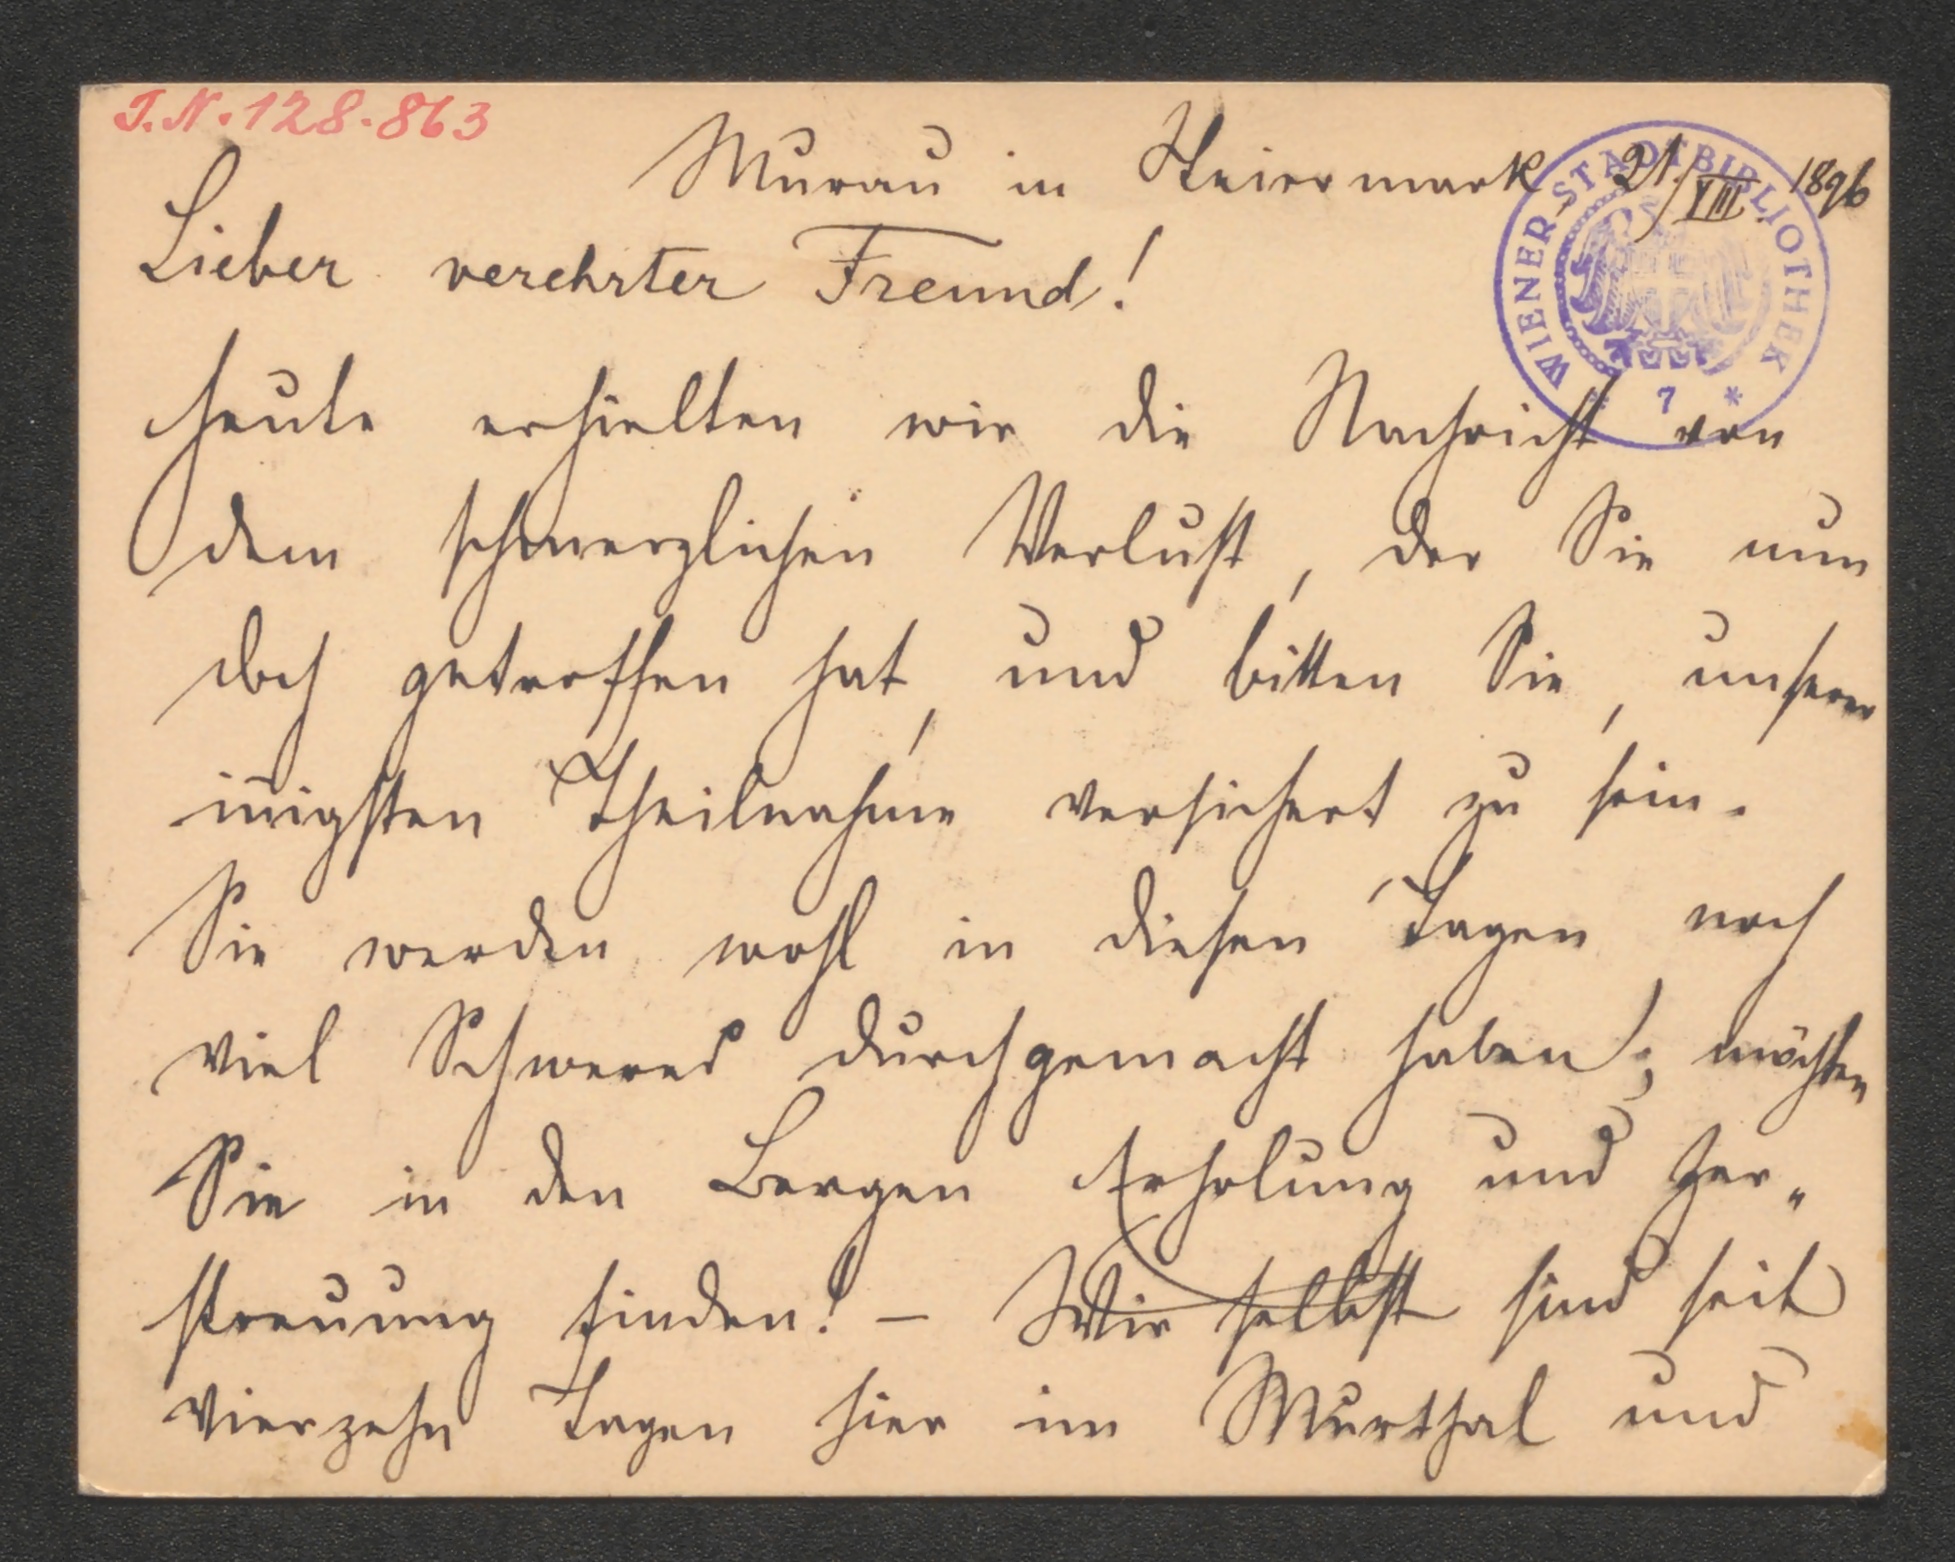 I.N. 128.863
Murau in Steiermark 21./VIII. 1896
WIENER STADTBIBLIOTHEK
* 7 *
Lieber verehrter Freund!
heute erhielten wir die Nachricht von
dem schmerzlichen Verlust, der Sie nun
doch getroffen hat, und bitten Sie, unserer
innigsten Theilnahme versichert zu sein.
Sie werden wohl in diesen Tagen noch
viel Schweres durchgemacht haben; möchten
Sie in den Bergen Erholung und Zer„
streuung finden! – Wir selbst sind seit
vierzehn Tagen hier im Murthal und